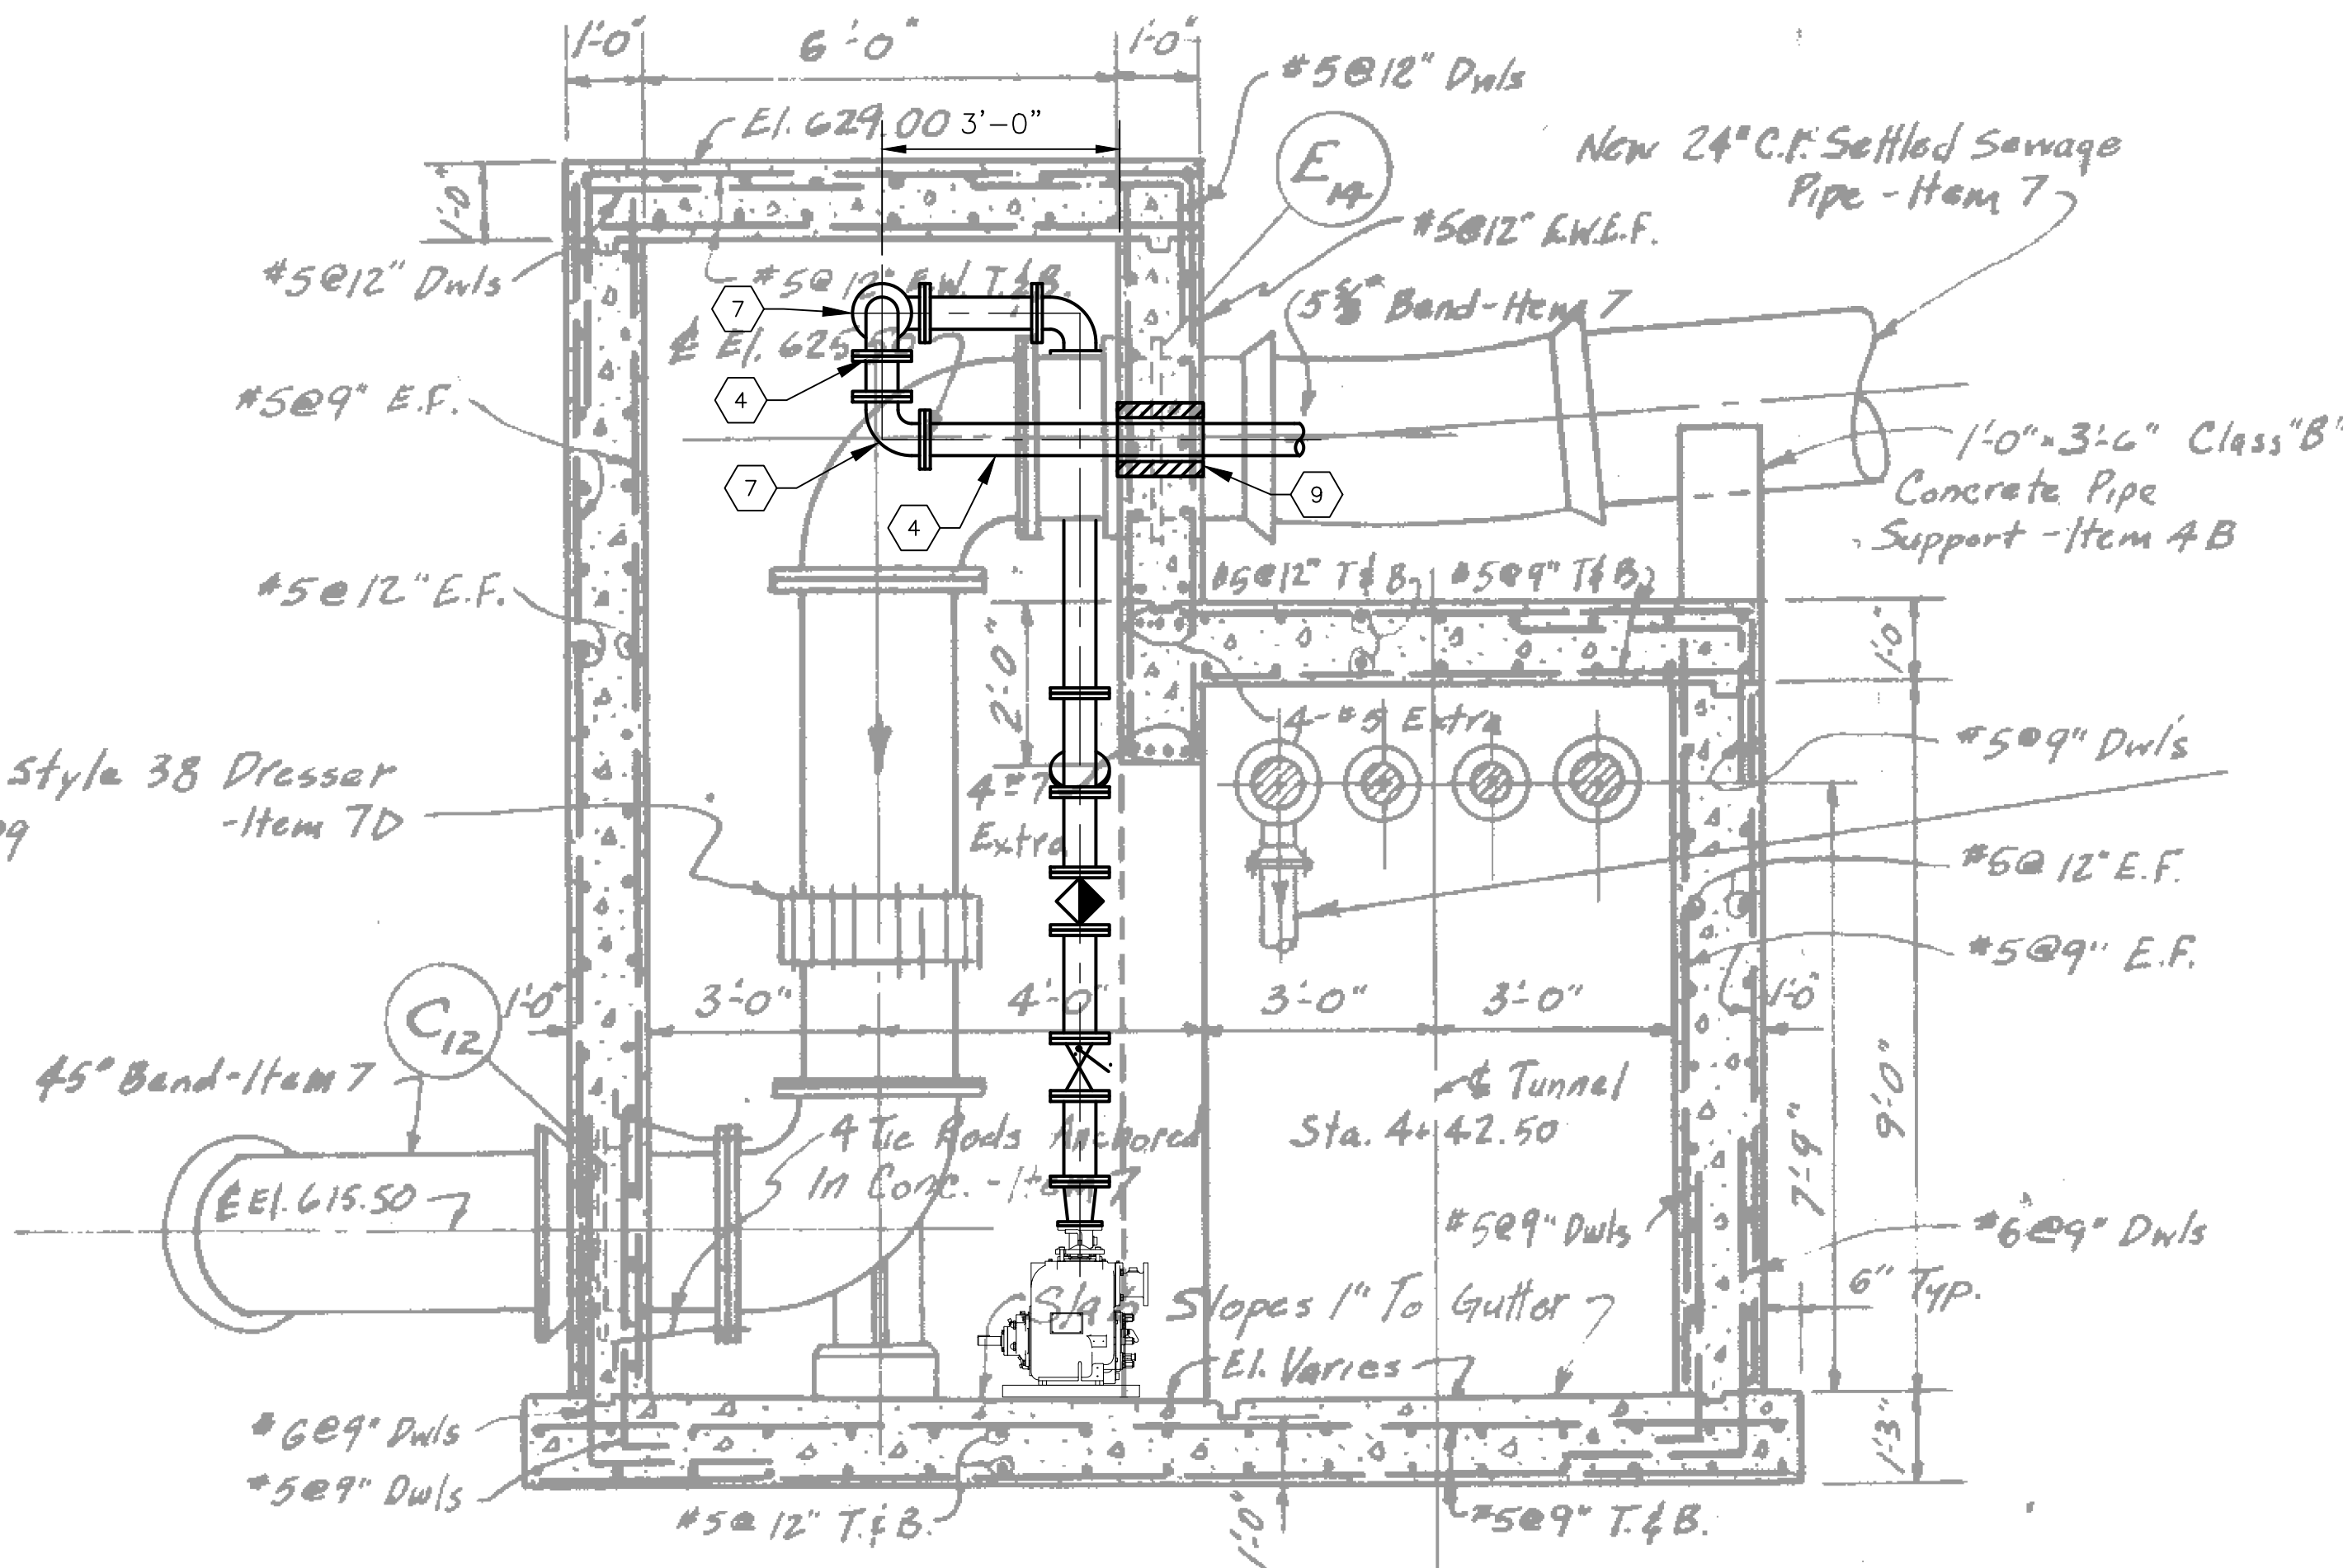 1'-0"
6'-0"
1'-0"
#5@12" Dwls
El. 629.00
3'-0"
E
14
New 24" C.P. Settled Sewage
Pipe - Item 7
1'-0"
#5@12" E.W.E.F.
#5@12" Dwls
#5@12" E.W. T.&B.
7
5⅝° Bend-Item 7
℄ El. 625.50
#5@9" E.F.
4
1'-0"x3'-6" Class "B"
Concrete Pipe
Support - Item 4B
7
4
9
#5@12" E.F.
#5@12" T&B
#5@9" T&B
2'-0"
1'-0"
4-#5 Extra
#5@9" Dwls
Style 38 Dresser
-Item 7D
4-#7
Extra
#5@12" E.F.
#5@9" E.F.
C
12
1'-0"
3'-0"
4'-0"
3'-0"
3'-0"
1'-0"
45° Bend-Item 7
℄ Tunnel
Sta. 4+42.50
9'-0"
7'-9"
4 Tie Rods Anchored
In Conc. - Item 7
℄ El. 615.50
#5@9" Dwls
#6@9" Dwls
6" Typ.
Slab Slopes 1" To Gutter
El. Varies
#6@9" Dwls
#5@9" Dwls
1'-3"
#5@12" T.&B.
1'-0"
#5@9" T.&B.